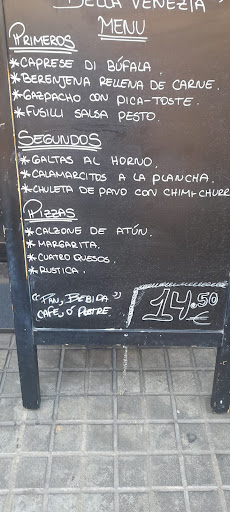 BELLA VENEZIA
MENU
PRIMEROS
* CAPRESE DI BÚFALA.
* BERENJENA RELLENA DE CARNE.
* GAZPACHO CON PICA-TOSTE.
* FUSILLI SALSA PESTO.
SEGUNDOS
* GALTAS AL HORNO.
* CALAMARCITOS A LA PLANCHA.
* CHULETA DE PAVO CON CHIMI-CHURR
PIZZAS
* CALZONE DE ATÚN.
* MARGARITA.
* CUATRO QUESOS.
* RUSTICA.
"PAN, BEBIDA"
CAFE, Ó POSTRE
14.50
€